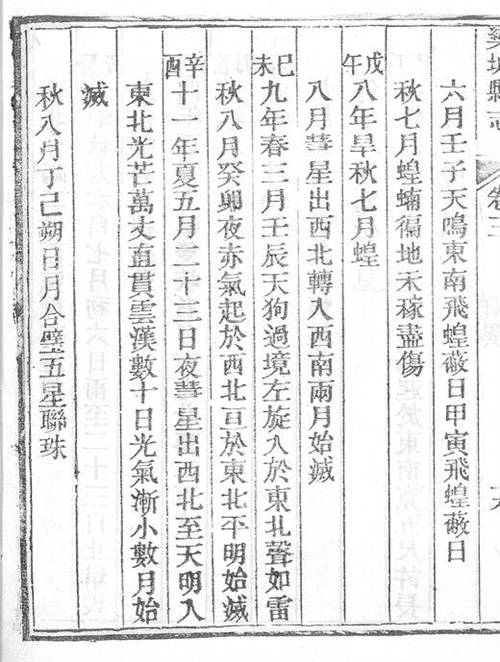 欒城縣志
卷三
六月壬子天鳴東南飛蝗蔽日甲寅飛蝗蔽日
秋七月蝗蝻徧地禾稼盡傷
戊午八年旱秋七月蝗
八月彗星出西北轉入西南兩月始滅
己未九年春三月壬辰天狗過境左旋入於東北聲如雷
秋八月癸卯夜赤氣起於西北亘於東北平明始滅
辛酉十一年夏五月二十三日夜彗星出西北至天明入
東北光芒萬丈直貫雲漢數十日光氣漸小數月始
滅
秋八月丁巳朔日月合璧五星聯珠